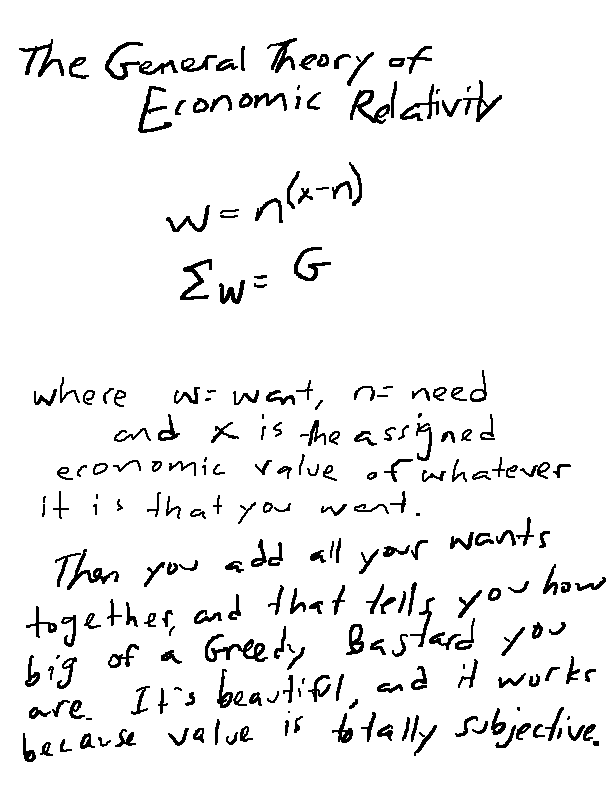 The General Theory of
Economic Relativity
w = n^(x-n)
Σw = G
where w = want, n = need
and x is the assigned
economic value of whatever
it is that you want.
Then you add all your wants
together, and that tells you how
big of a Greedy Bastard you
are. It's beautiful, and it works
because value is totally subjective.